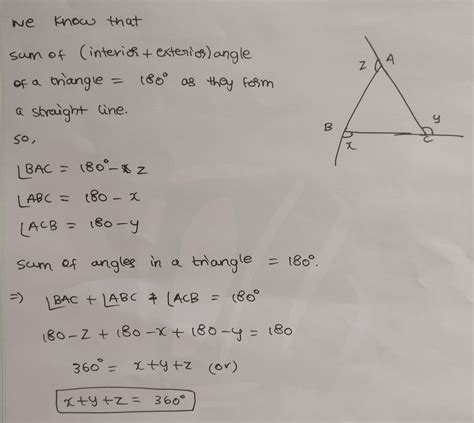 we know that
sum of (interior + exterior) angle
of a triangle = 180° as they form
a straight line.
so,
∠BAC = 180° - z
∠ABC = 180 - x
∠ACB = 180 - y
sum of angles in a triangle = 180°.
⇒ ∠BAC + ∠ABC + ∠ACB = 180°
180 - z + 180 - x + 180 - y = 180
360° = x+y+z (or)
x+y+z = 360°
z A
B
x
y
C